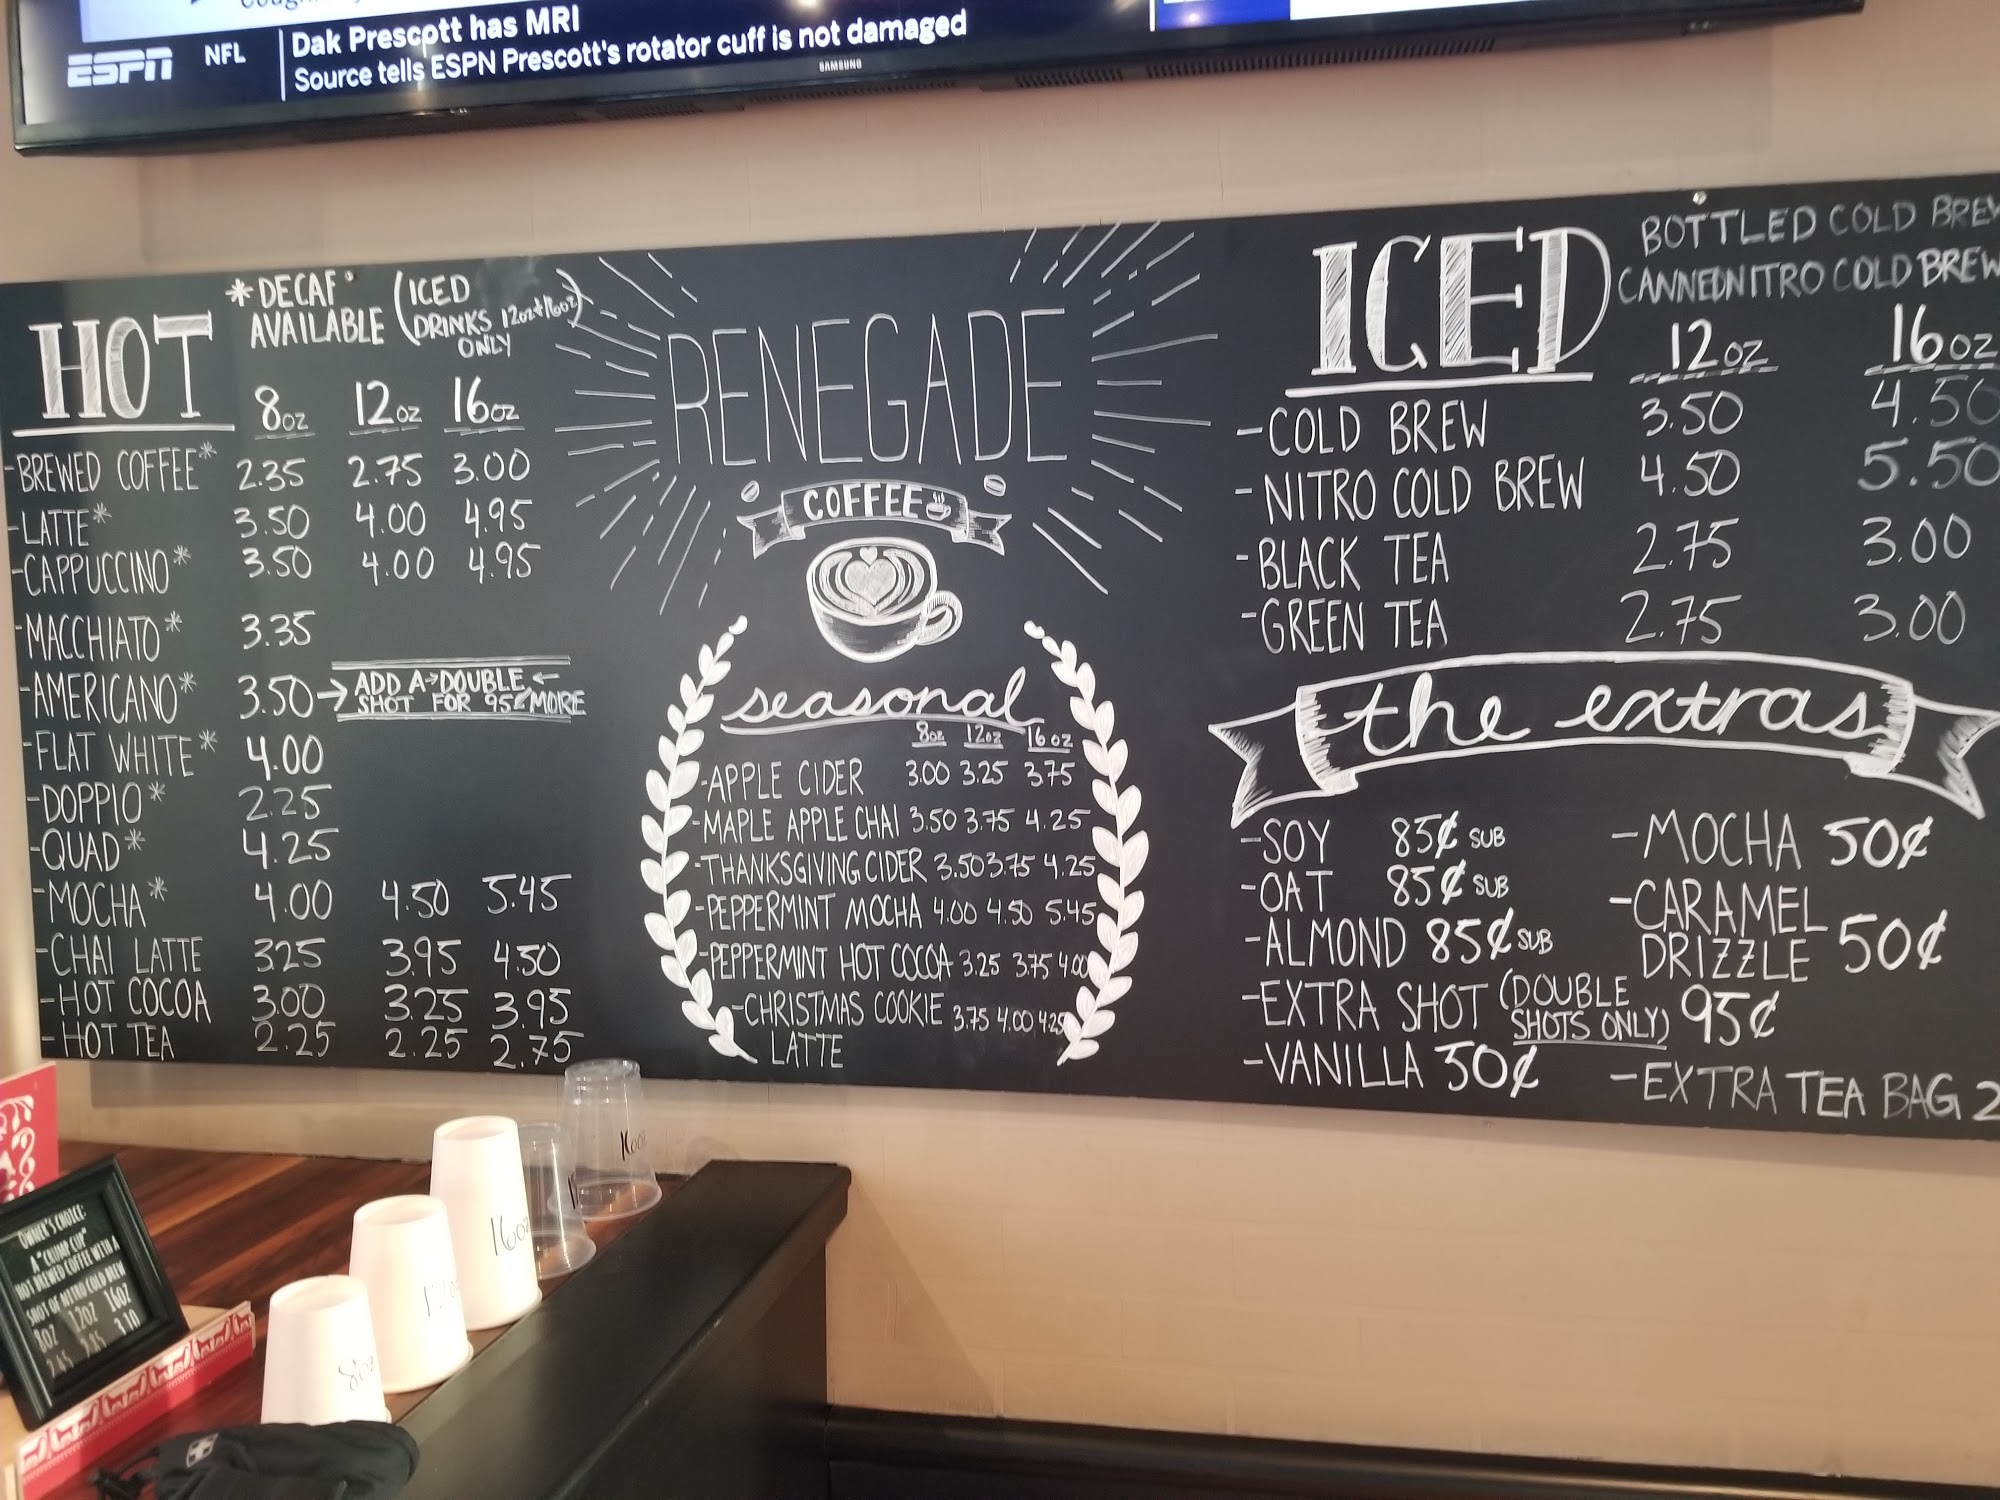 ESPN NFL Dak Prescott has MRI
Source tells ESPN Prescott's rotator cuff is not damaged
SAMSUNG
HOT
*DECAF
AVAILABLE
(ICED
DRINKS 12oz+16oz)
ONLY
8oz 12oz 16oz
-BREWED COFFEE* 2.35 2.75 3.00
-LATTE* 3.50 4.00 4.95
-CAPPUCCINO* 3.50 4.00 4.95
-MACCHIATO* 3.35
-AMERICANO* 3.50→ ADD A→DOUBLE←
SHOT FOR 95¢ MORE
-FLAT WHITE* 4.00
-DOPPIO* 2.25
-QUAD* 4.25
-MOCHA* 4.00 4.50 5.45
-CHAI LATTE 3.25 3.95 4.50
-HOT COCOA 3.00 3.25 3.95
-HOT TEA 2.25 2.25 2.75
RENEGADE
COFFEE
seasonal
8oz 12oz 16oz
-APPLE CIDER 3.00 3.25 3.75
-MAPLE APPLE CHAI 3.50 3.75 4.25
-THANKSGIVING CIDER 3.50 3.75 4.25
-PEPPERMINT MOCHA 4.00 4.50 5.45
-PEPPERMINT HOT COCOA 3.25 3.75 4.00
-CHRISTMAS COOKIE 3.75 4.00 4.25
LATTE
ICED
BOTTLED COLD BREW
CANNED NITRO COLD BREW
12oz 16oz
-COLD BREW 3.50 4.50
-NITRO COLD BREW 4.50 5.50
-BLACK TEA 2.75 3.00
-GREEN TEA 2.75 3.00
the extras
-SOY 85¢ SUB
-OAT 85¢ SUB
-ALMOND 85¢ SUB
-EXTRA SHOT (DOUBLE
SHOTS ONLY) 95¢
-VANILLA 50¢
-MOCHA 50¢
-CARAMEL
DRIZZLE 50¢
-EXTRA TEA BAG
OWNER'S CHOICE:
A "CHUMP CUP"
HOT BREWED COFFEE WITH A
SHOT OF NITRO COLD BREW
8OZ 12OZ 16OZ
8oz
12oz
16oz
16oz